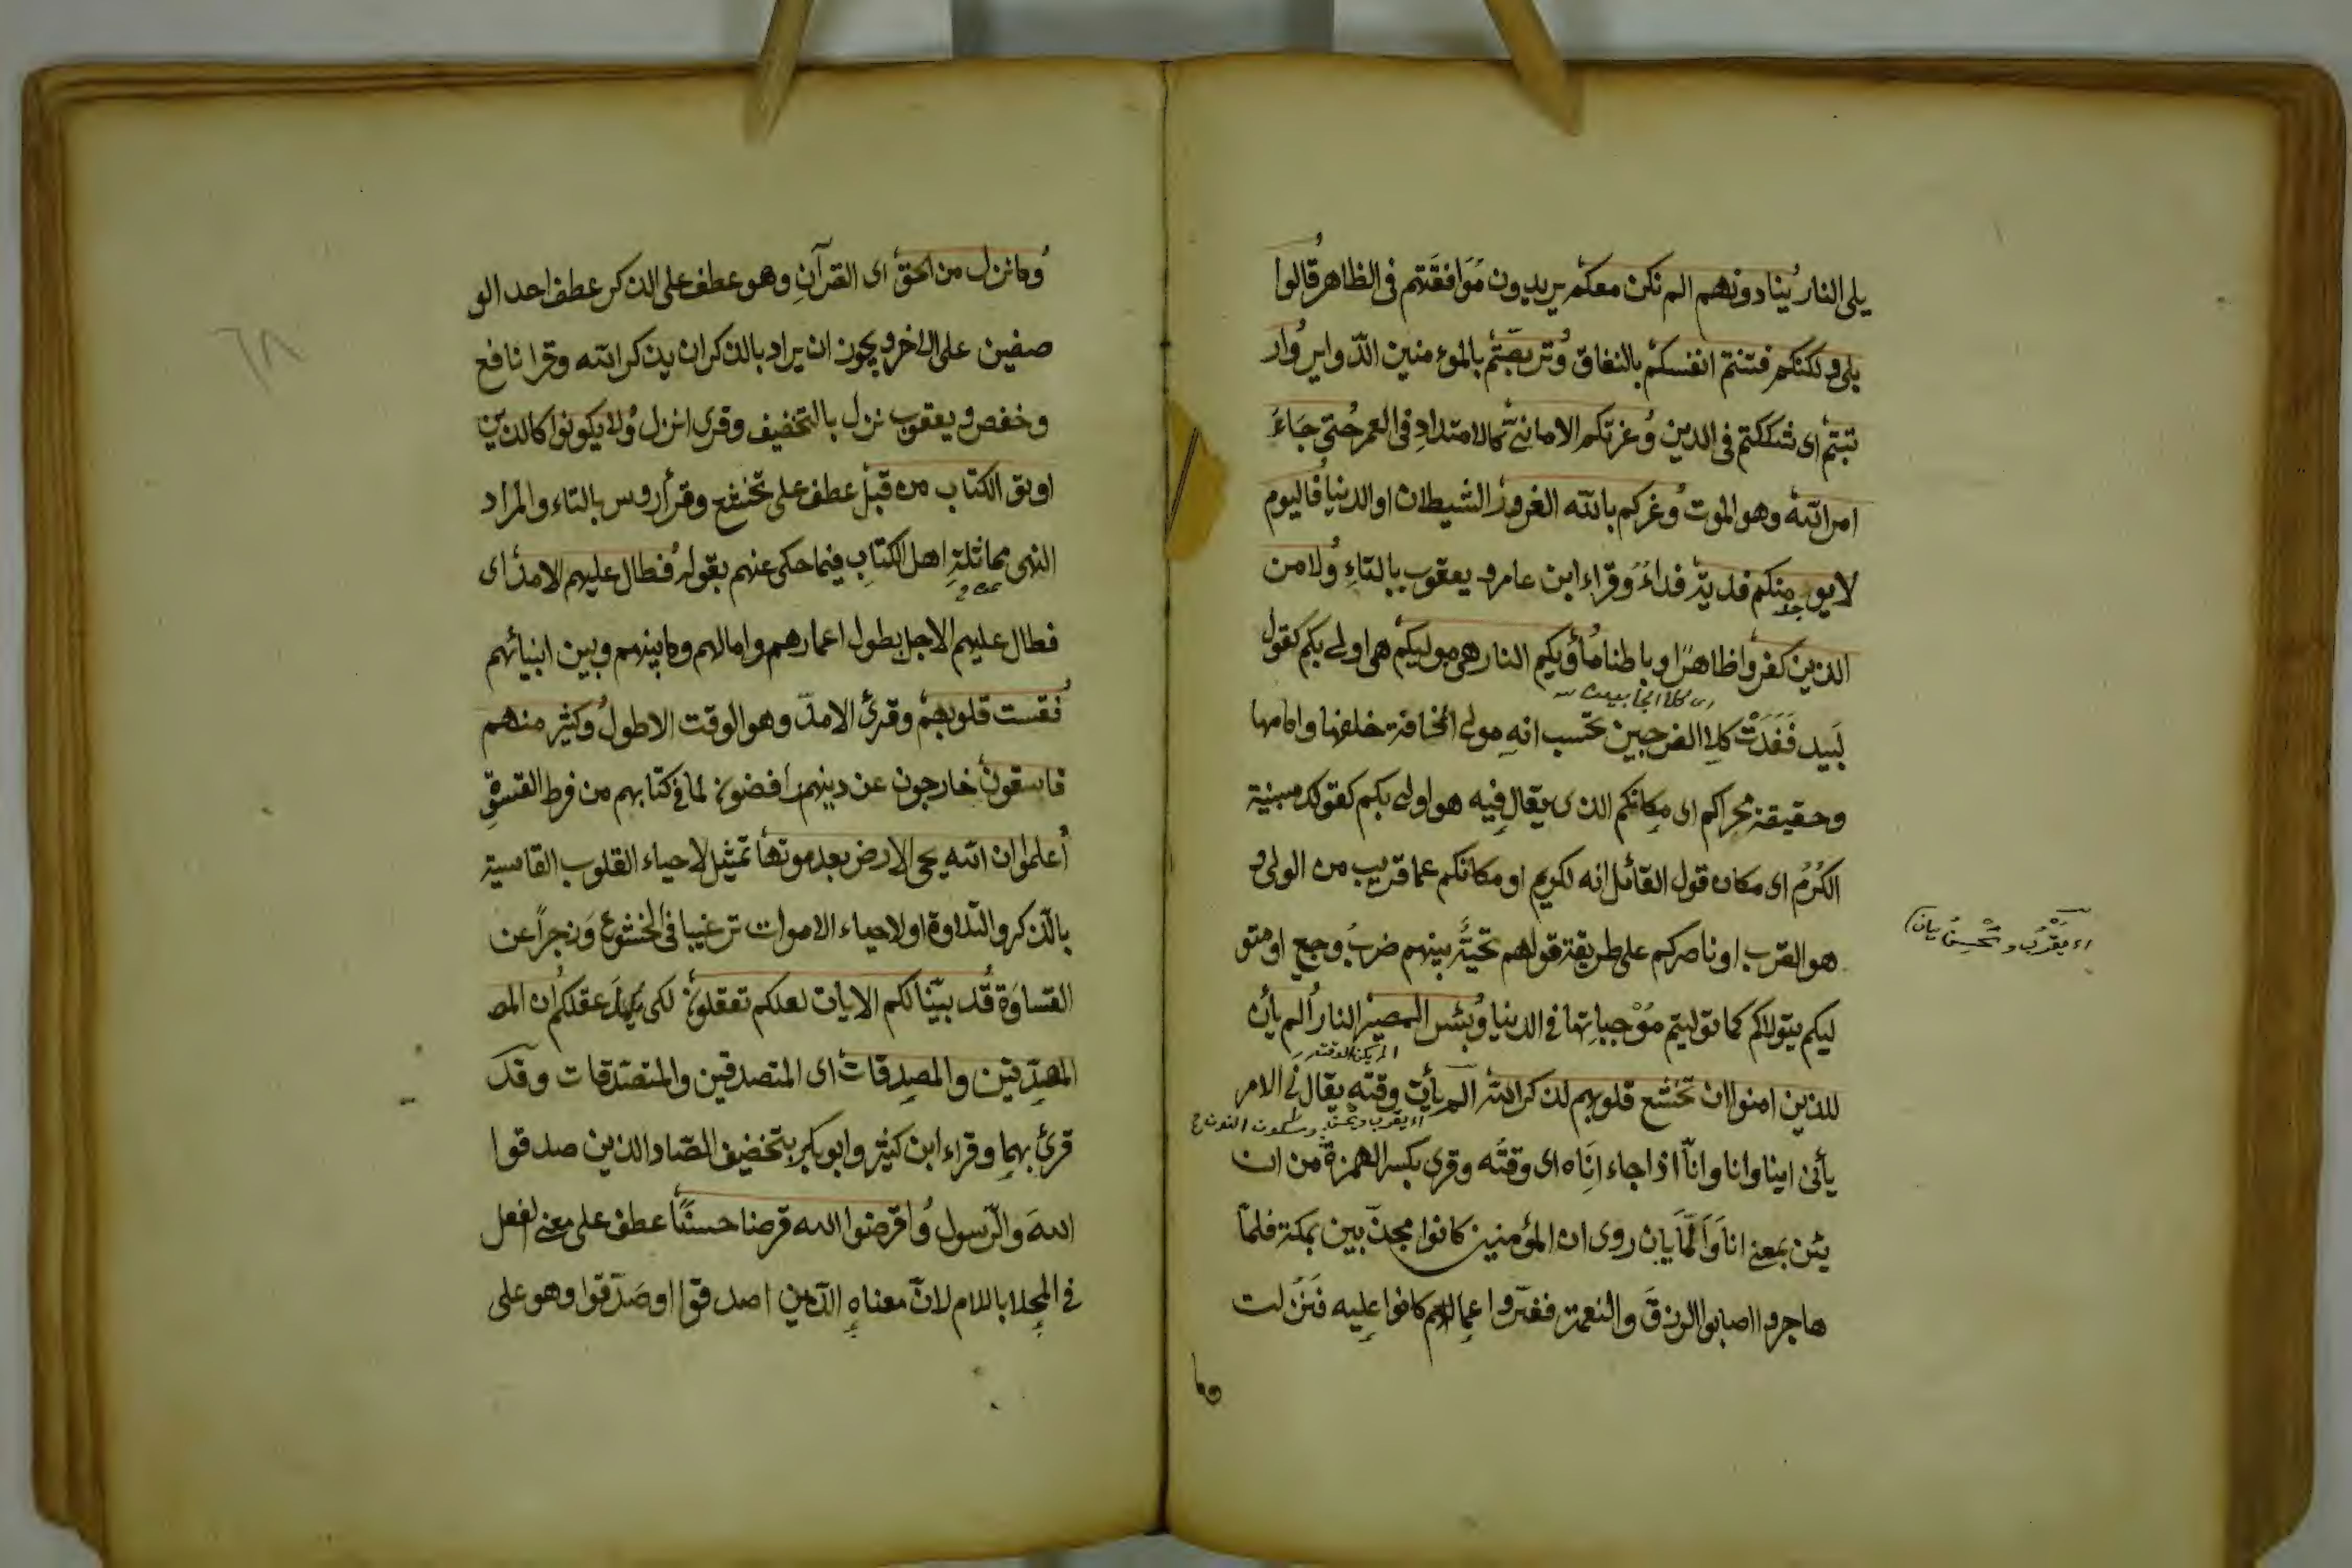 يلى النار ينادونهم الم نكن معكم يريدون موافقتهم فى الظاهر قالوا
بلى ولكنكم فتنتم انفسكم بالنفاق وتربصتم بالمؤمنين الدوائر وار
تبتم اى شككتم فى الدين وغرتكم الامانى كالامتداد فى العمر حتى جَاءَ
امر الله وهو الموت وغركم بالله الغرور الشيطان او الدنيا فاليوم
لا يوخذ منكم فدية فداءٌ وقراء ابن عامر ويعقوب بالتاءِ ولا من
الذين كفروا ظاهرًا وباطنا مأويكم النار هى موليكم هى اولى بكم كقول
لَبيد فَغَدَتْ كلا الفرجين تحسب انه مولى المخافة خلفها وامامها
وحقيقة محراكم اى مكانكم الذى يقال فيه هو اولى بكم كقولك مبنية
الكرُم اى مكان قول القائل انه لكريم او مكانكم عما قريب من الولى و
هو القرب او ناصركم على طريقة قولهم تحيَّة بينهم ضربٌ وجع او متو
ليكم يتولاكم كما توليتم مُوْجباتها فى الدنيا وبئس المصير النار الم يأن
الم يكن الوقت
للذين امنوا ان تخشع قلوبهم لذكر الله الم يأت وقته يقال نى الامر
يأنى اينا وانا وانّاً اذا جاء اِنَاه اى وقتُه وقرى بكسر الهمزة من ان
يئن بمعنى انا وأَلَمّا يان روى ان المؤمنين كانوا مجدبين بمكة فلمّا
هاجروا اصابوا الرزقَ والنعمة ففتروا عمالهم كانوا عليه فنزلت
وما
اى يقْرُب ويَحْسِن بيان
وما نزل من الحق اى القرآنِ وهو عطف على الذكر عطف احد الو
صفين على الاخر ويجوز ان يراد بالذكر ان يذكر الله وقرا نافع
وحفص ويعقوب نزل بالتخفيف وقرى انزل ولا يكونوا كالذين
اوتو الكتاب من قبل عطف على تخشع وقرأ رويس بالتاء والمراد
النهى مماثلةِ اهل الكتابِ فيما حكى عنهم بقوله فطال عليهم الامد اى
فطال عليهم الاجل بطول اعمارهم وامالهم وما بينهم وبين انبيائهم
فقست قلوبهم وقرئ الامدّ وهو الوقت الاطول وكثير منهم
فاسقون خارجون عن دينهم رافضون لما فى كتابهم من فرط القسوةِ
اعلموا ان الله يحى الارض بعد موتها تمثيل لاحياء القلوب القاسية
بالذكر والتلاوة او لاحياء الاموات ترغيبا فى الخشوع وَزجراً عن
القساوَة قد بيّنا لكم الايات لعلكم تعقلون لكى يكمل عقلكم ان المص
المصّدّقين والمصدقات اى المتصدقين والمتصدقات وقد
قرئ بهما وقراء ابن كثير وابو بكر بتخفيف الصّاد الذين صدقوا
اللهَ والرّسول واقرضوا الله قرضا حسنًا عطف على معنى الفعل
فى المحلا باللام لانّ معناه الّذين اصدقوا او صَدّقوا وهو على
٦٨